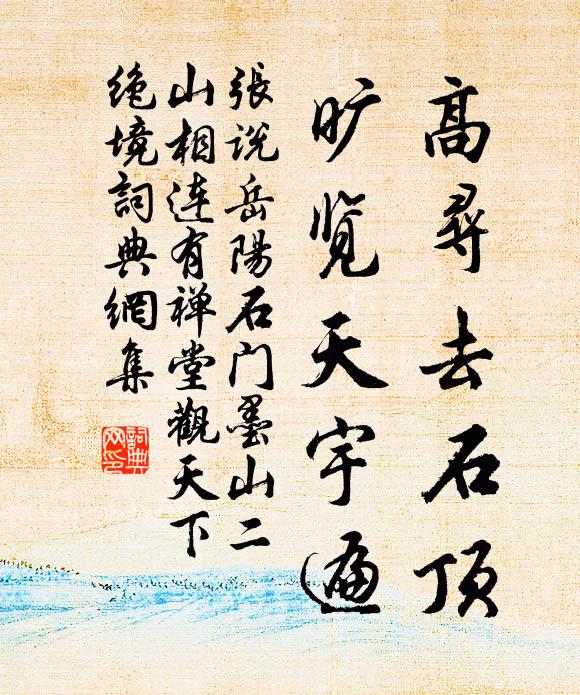 高尋去石顶
旷览天宇遍
張说岳陽石门墨山二
山相连有禅堂觀天下
绝境詞典網集
詞典網印